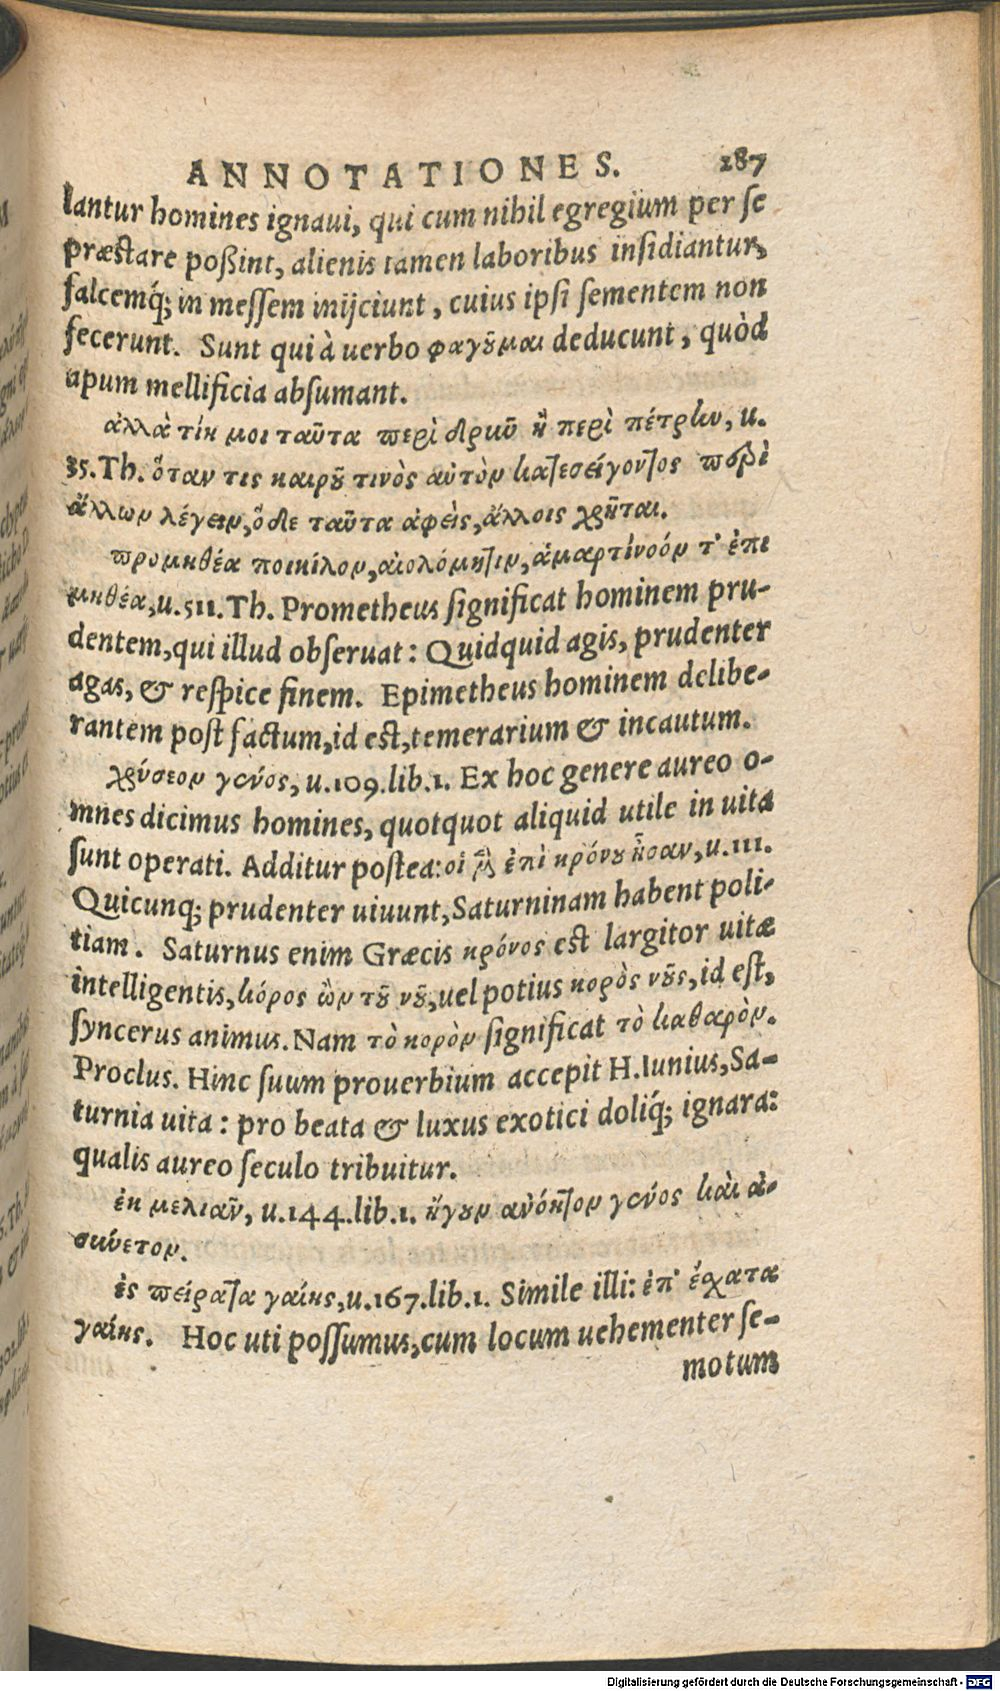 ANNOTATIONES. 187
lantur homines ignaui, qui cum nihil egregium per se
præstare poßint, alienis tamen laboribus insidiantur,
falcemq́; in messem inijciunt, cuius ipsi sementem non
fecerunt. Sunt qui à uerbo φαγοῦμαι deducunt, quòd
apum mellificia absumant.
ἀλλὰ τίη μοι ταῦτα περὶ δρυῦ ἢ περὶ πέτρην, u.
35. Th. ὅταν τις καιροῦ τινὸς αὐτὸν κατεπείγοντος περὶ
ἄλλων λέγειν, ὁ δὲ ταῦτα ἀφεὶς, ἄλλοις χρῆται.
προμηθέα ποικίλον, αἰολόμητιν, ἁμαρτίνοόν τ' ἐπι
μηθέα, u. 511. Th. Prometheus significat hominem pru-
dentem, qui illud obseruat: Quidquid agis, prudenter
agas, & respice finem. Epimetheus hominem delibe-
rantem post factum, id est, temerarium & incautum.
χρύσεον γένος, u. 109. lib. 1. Ex hoc genere aureo o-
mnes dicimus homines, quotquot aliquid utile in uita
sunt operati. Additur postea: οἱ μὲν ἐπὶ κρόνου ἦσαν, u. 111.
Quicunq; prudenter uiuunt, Saturninam habent poli-
tiam. Saturnus enim Græcis κρόνος est largitor uitæ
intelligentis, κόρος ὢν τοῦ νοῦ, uel potius κορὸς νοῦς, id est,
syncerus animus. Nam τὸ κορὸν significat τὸ καθαρὸν.
Proclus. Hinc suum prouerbium accepit H. Iunius, Sa-
turnia uita: pro beata & luxus exotici doliq́; ignara:
qualis aureo seculo tribuitur.
ἐκ μελιᾶν, u. 144. lib. 1. ἤγουν ἀνόητον γένος καὶ ἀ-
σύνετον.
ἐς πείρατα γαίης, u. 167. lib. 1. Simile illi: ἐπ' ἔσχατα
γαίης. Hoc uti possumus, cum locum uehementer se-
motum
Digitalisierung gefördert durch die Deutsche Forschungsgemeinschaft - DFG